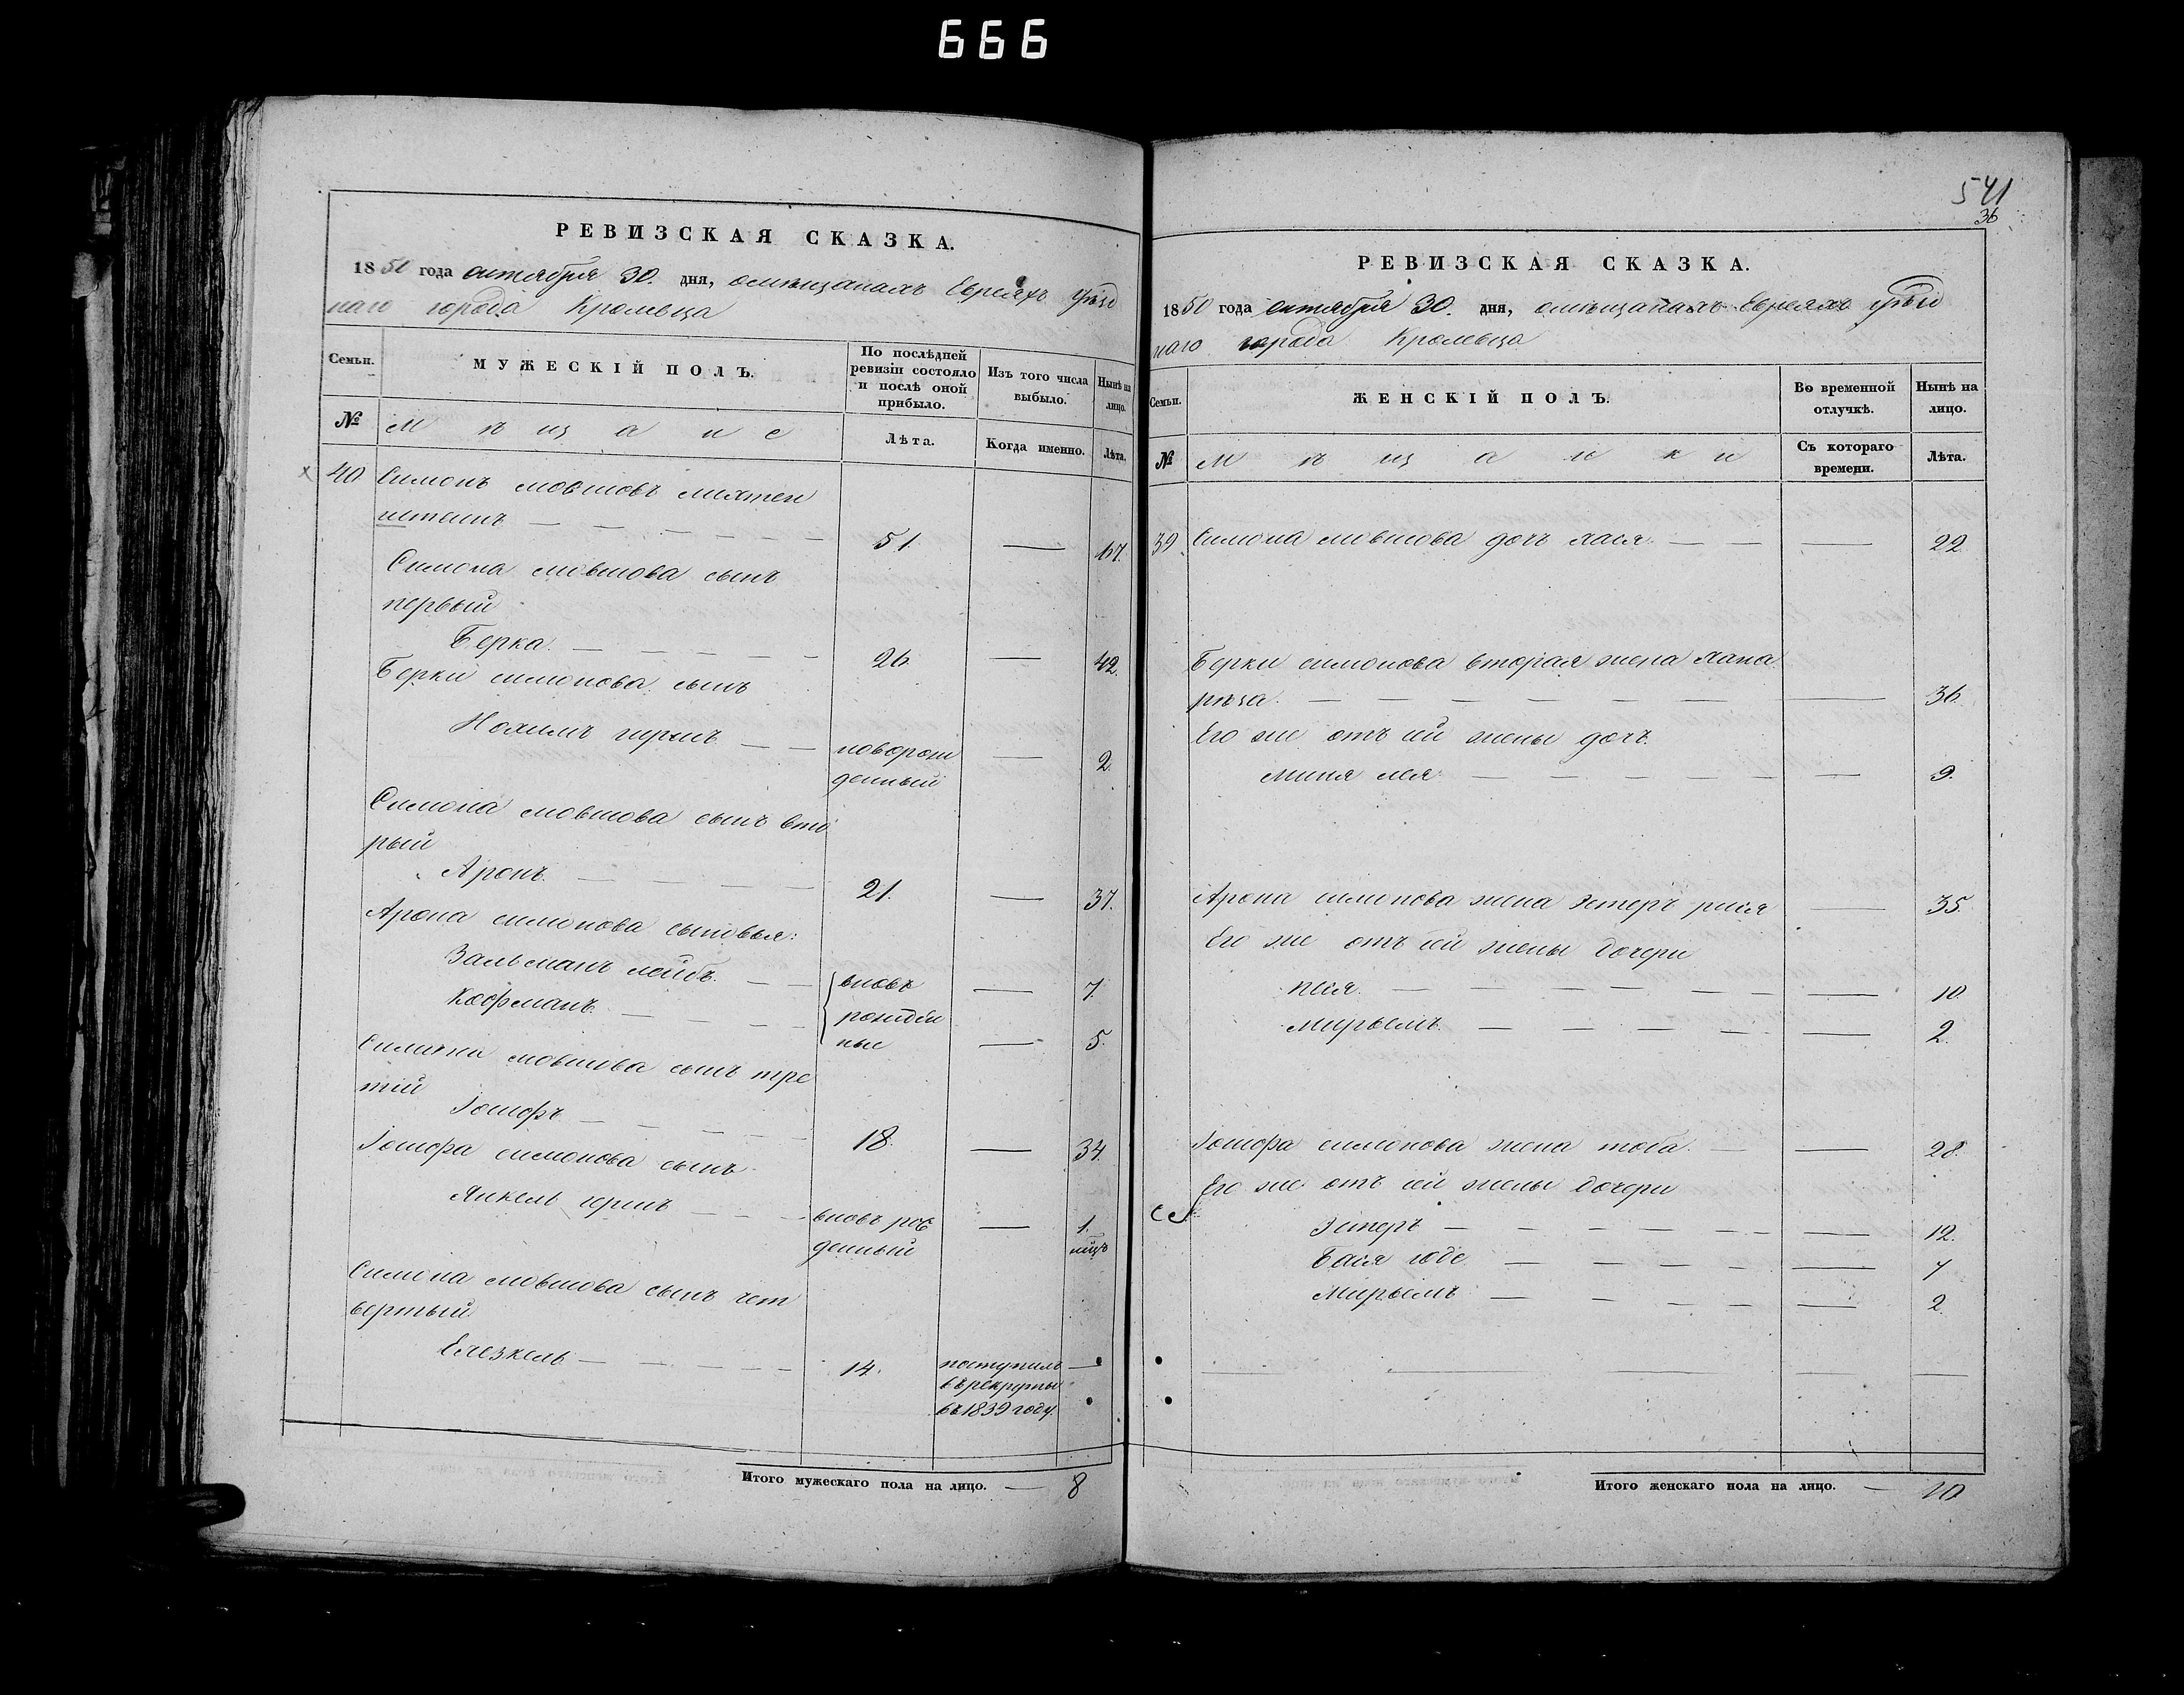 666
РЕВИЗСКАЯ СКАЗКА.
1850 года октября 30. дня, о мѣщанахъ Евреяхъ уѣзд
наго города Кролевца
Семьи.
МУЖЕСКІЙ ПОЛЪ.
По послѣдней ревизіи состояло и послѣ оной прибыло.
Изъ того числа выбыло.
Нынѣ на лицо.
№
Мѣщане
Лѣта.
Когда именно.
Лѣта.
40 Симонъ Мовшовъ
штеинъ — 51. — 67.
Симона Мовшова сынъ
первый
Берка. — 26 — 42.
Берки Симонова сынъ
Нохимъ Гиршъ — новорож — 2.
денный
Симона Мовшова сынъ вто
рый
Аронъ. — 21. — 37.
Арона Симонова сыновья:
Зальманъ Лейбъ. — вновь — 7.
Кофманъ. — рожден
ные — 5.
Симона Мовшова сынъ тре
тій
Іосифъ — 18. — 34.
Іосифа Симонова сынъ
Янкель Гершъ — вновь рож — 1.
денный мѣцъ
Симона Мовшова сынъ чет
вертый
Елезкель — 14. поступилъ —
въ рекруты
въ 1839 году.
Итого мужескаго пола на лицо. — 8
541
36
РЕВИЗСКАЯ СКАЗКА.
1850 года октября 30. дня, о мѣщанахъ Евреяхъ уѣзд
наго города Кролевца
Семьи.
ЖЕНСКІЙ ПОЛЪ.
Во временной отлучкѣ.
Нынѣ на лицо.
№
Мѣщанки
Съ котораго времени.
Лѣта.
39 Симона Мовшова дочь Хася. — — 22
Берки Симонова вторая жена Хана
рѣза. — — 36.
Его же отъ ней жены дочь.
Миня Лея — — 9.
Арона Симонова жена Эстеръ Рися — 35.
Его же отъ ней жены дочери
Песя. — — 10.
Мирьемъ. — — 2.
Іосифа Симонова жена Тоба. — — 28.
Его же отъ ней жены дочери
Эстеръ — — 12.
Бася Годе — — 7
Мирьемъ — — 2.
Итого женскаго пола на лицо. — 10